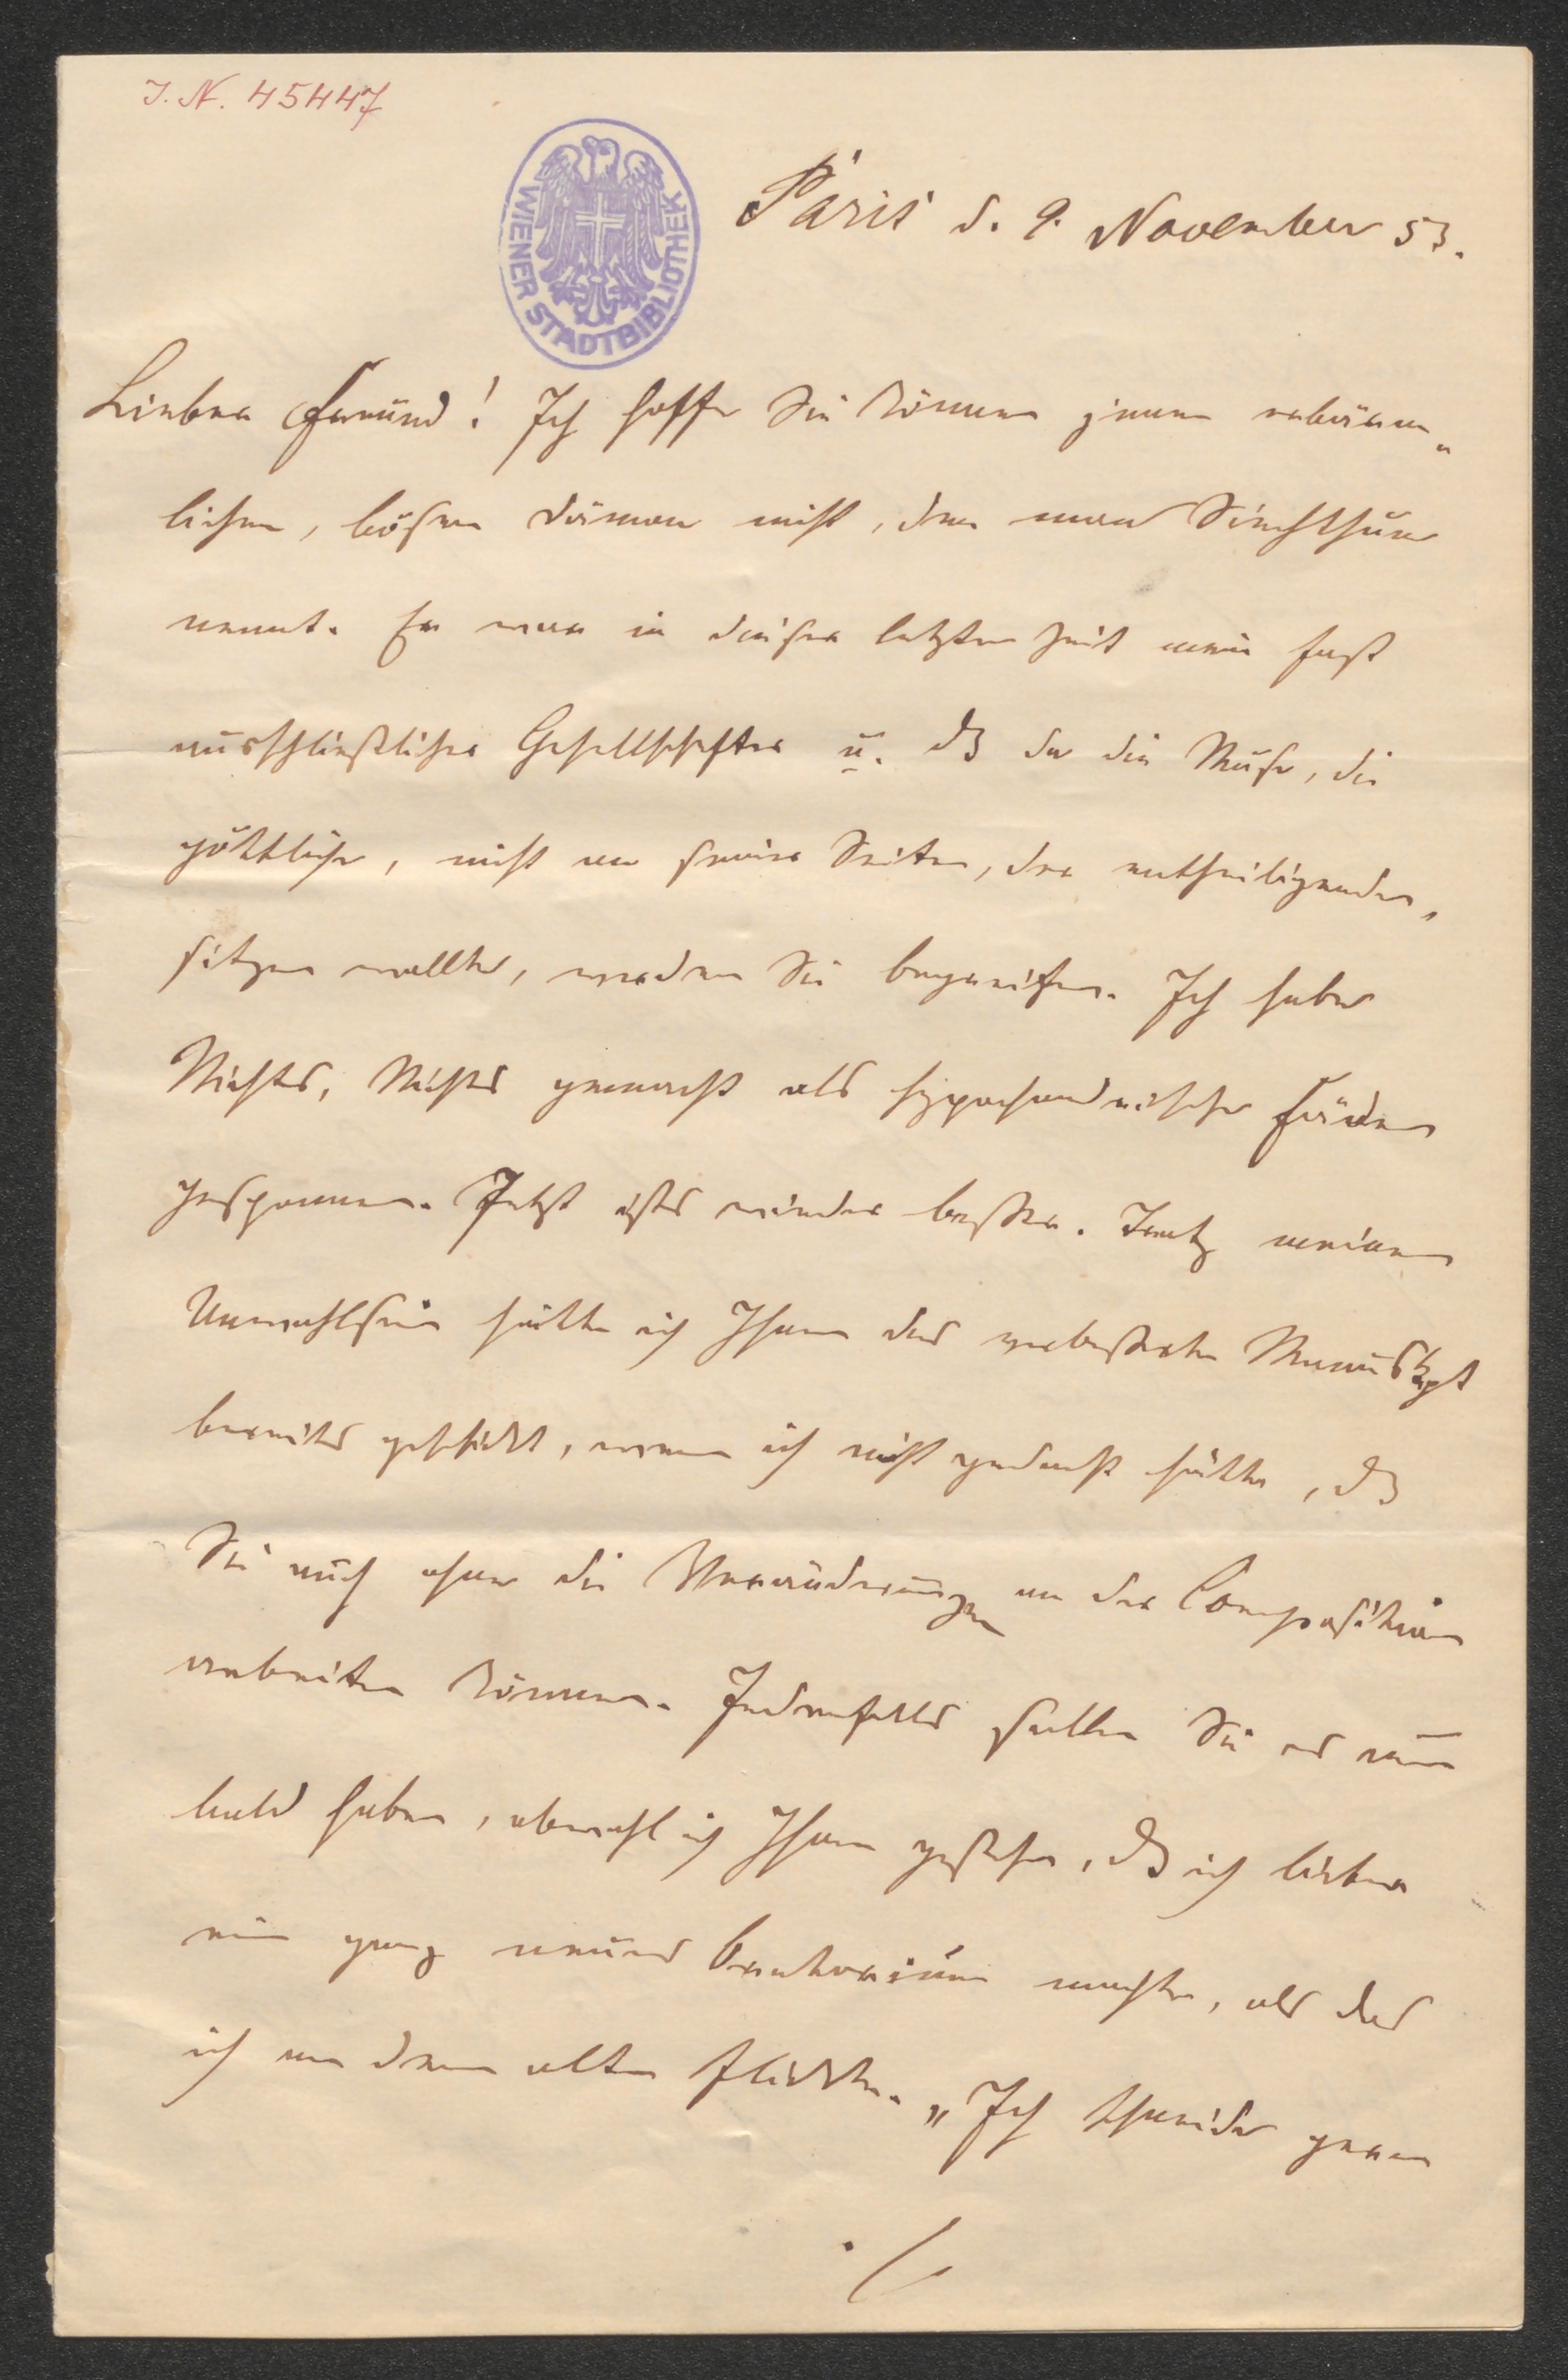 I. N. 45447
WIENER STADTBIBLIOTHEK
Paris d. 9. November 53.
Lieber Freund! Ich hoffe Sie können jenen erbärm„
lichen, bösen Dämon nicht, den man Siechthum
nennt. Er war in dieser letzten Zeit mein fast
ausschließlicher Gesellschafter u. dß da die Muse, die
göttliche, nicht an seiner Seiten, der
sitzen wollte, werden Sie begreifen. Ich habe
Nichts, Nichts gemacht als hypochondrische Fäden
gesponnen. Jetzt ists wieder besser. Trotz meinem
Unwohlsein hätte ich Ihnen das verbesserte Manuskpt
bereits geschickt, wenn ich nicht gedacht hätte, dß
Sie auch ohne die Veränderungen an der Composition
arbeiten können. Jedenfalls sollen Sie es nun
bald haben, obwohl ich Ihnen gestehe, dß ich lieber
ein ganz neues Oratorium machte, als daß
ich an dem alten flickte. „Ich schneide gern
./.